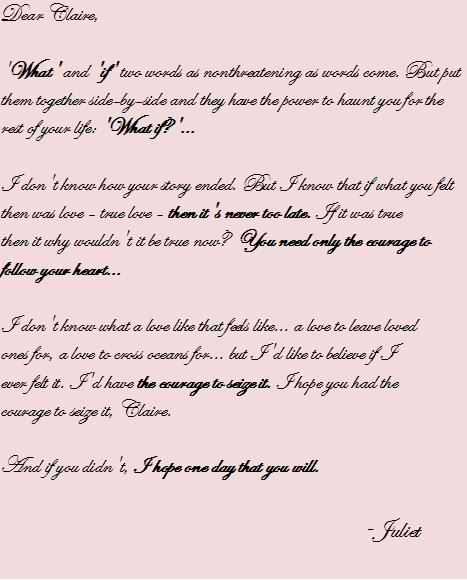 Dear Claire,
'What' and 'if' two words as nonthreatening as words come. But put
them together side-by-side and they have the power to haunt you for the
rest of your life: 'What if?'...
I don't know how your story ended. But I know that if what you felt
then was love - true love - then it's never too late. If it was true
then it why wouldn't it be true now? You need only the courage to
follow your heart...
I don't know what a love like that feels like... a love to leave loved
ones for, a love to cross oceans for... but I'd like to believe if I
ever felt it. I'd have the courage to seize it. I hope you had the
courage to seize it, Claire.
And if you didn't, I hope one day that you will.
-Juliet